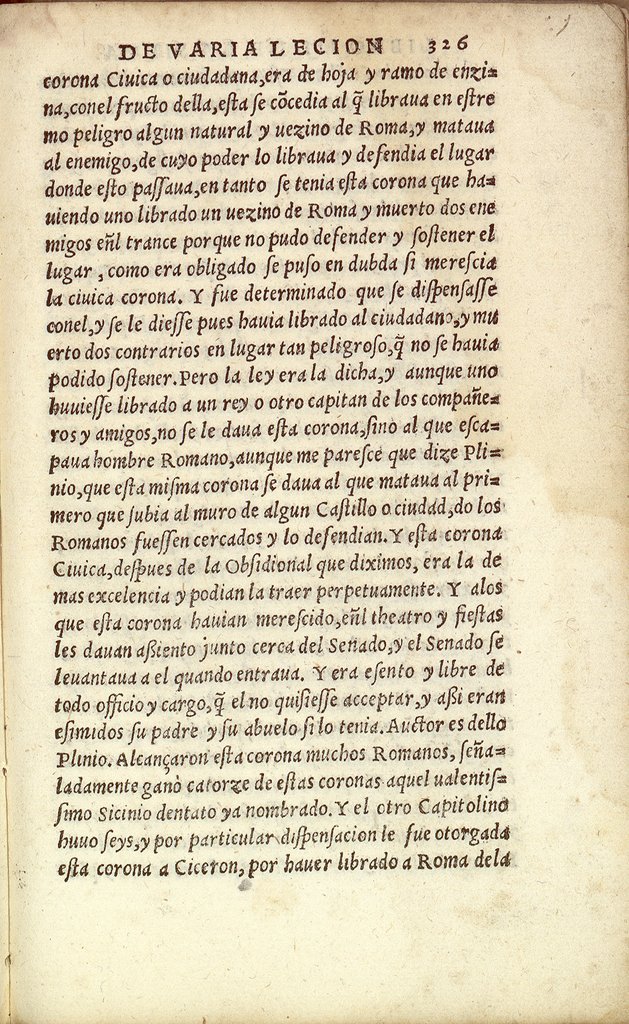 DE VARIA LECION 326
corona Ciuica o ciudadana,era de hoja y ramo de enzi=
na,conel fructo della,esta se cōcedia al q̄ libraua en estre
mo peligro algun natural y uezino de Roma,y mataua
al enemigo,de cuyo poder lo libraua y defendia el lugar
donde esto passaua,en tanto se tenia esta corona que ha=
uiendo uno librado un uezino de Roma y muerto dos ene
migos eñl trance porque no pudo defender y sostener el
lugar , como era obligado se puso en dubda si merescia
la ciuica corona. Y fue determinado que se dispensasse
conel,y se le diesse pues hauia librado al ciudadano,y mu
erto dos contrarios en lugar tan peligroso,q̄ no se hauia
podido sostener.Pero la ley era la dicha,y aunque uno
huuiesse librado a un rey o otro capitan de los compañe=
ros y amigos,no se le daua esta corona,sino al que esca=
paua hombre Romano,aunque me paresce que dize Pli=
nio,que esta misma corona se daua al que mataua al pri=
mero que subia al muro de algun Castillo o ciudad,do los
Romanos fuessen cercados y lo defendian.Y esta corona
Ciuica,despues de la Obsidional que diximos, era la de
mas excelencia y podian la traer perpetuamente. Y alos
que esta corona hauian merescido,eñl theatro y fiestas
les dauan aßiento junto cerca del Senado,y el Senado se
leuantaua a el quando entraua. Y era esento y libre de
todo officio y cargo,q̄ el no quisiesse acceptar,y aßi eran
esimidos su padre y su abuelo si lo tenia.Auctor es dello
Plinio.Alcançaron esta corona muchos Romanos, seña=
ladamente ganò catorze de estas coronas aquel ualentis=
simo Sicinio dentato ya nombrado.Y el otro Capitolino
huuo seys,y por particular dispensacion le fue otorgada
esta corona a Ciceron, por hauer librado a Roma dela